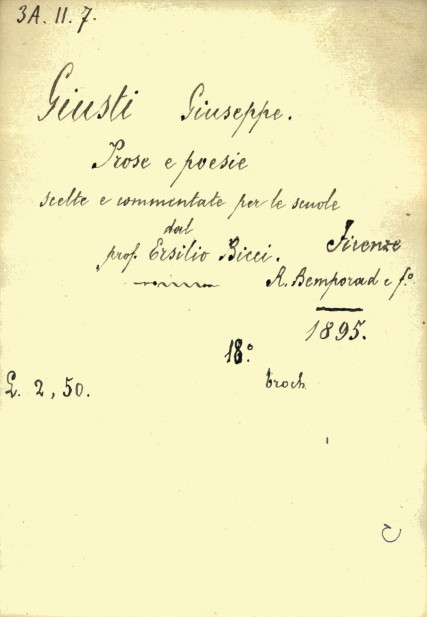 3A. II. 7.
Giusti Giuseppe.
Prose e poesie
scelte e commentate per le scuole
dal
prof. Ersilio Bicci.
Firenze
R. Bemporad e f.º
1895.
18.º
broch.
L. 2,50.